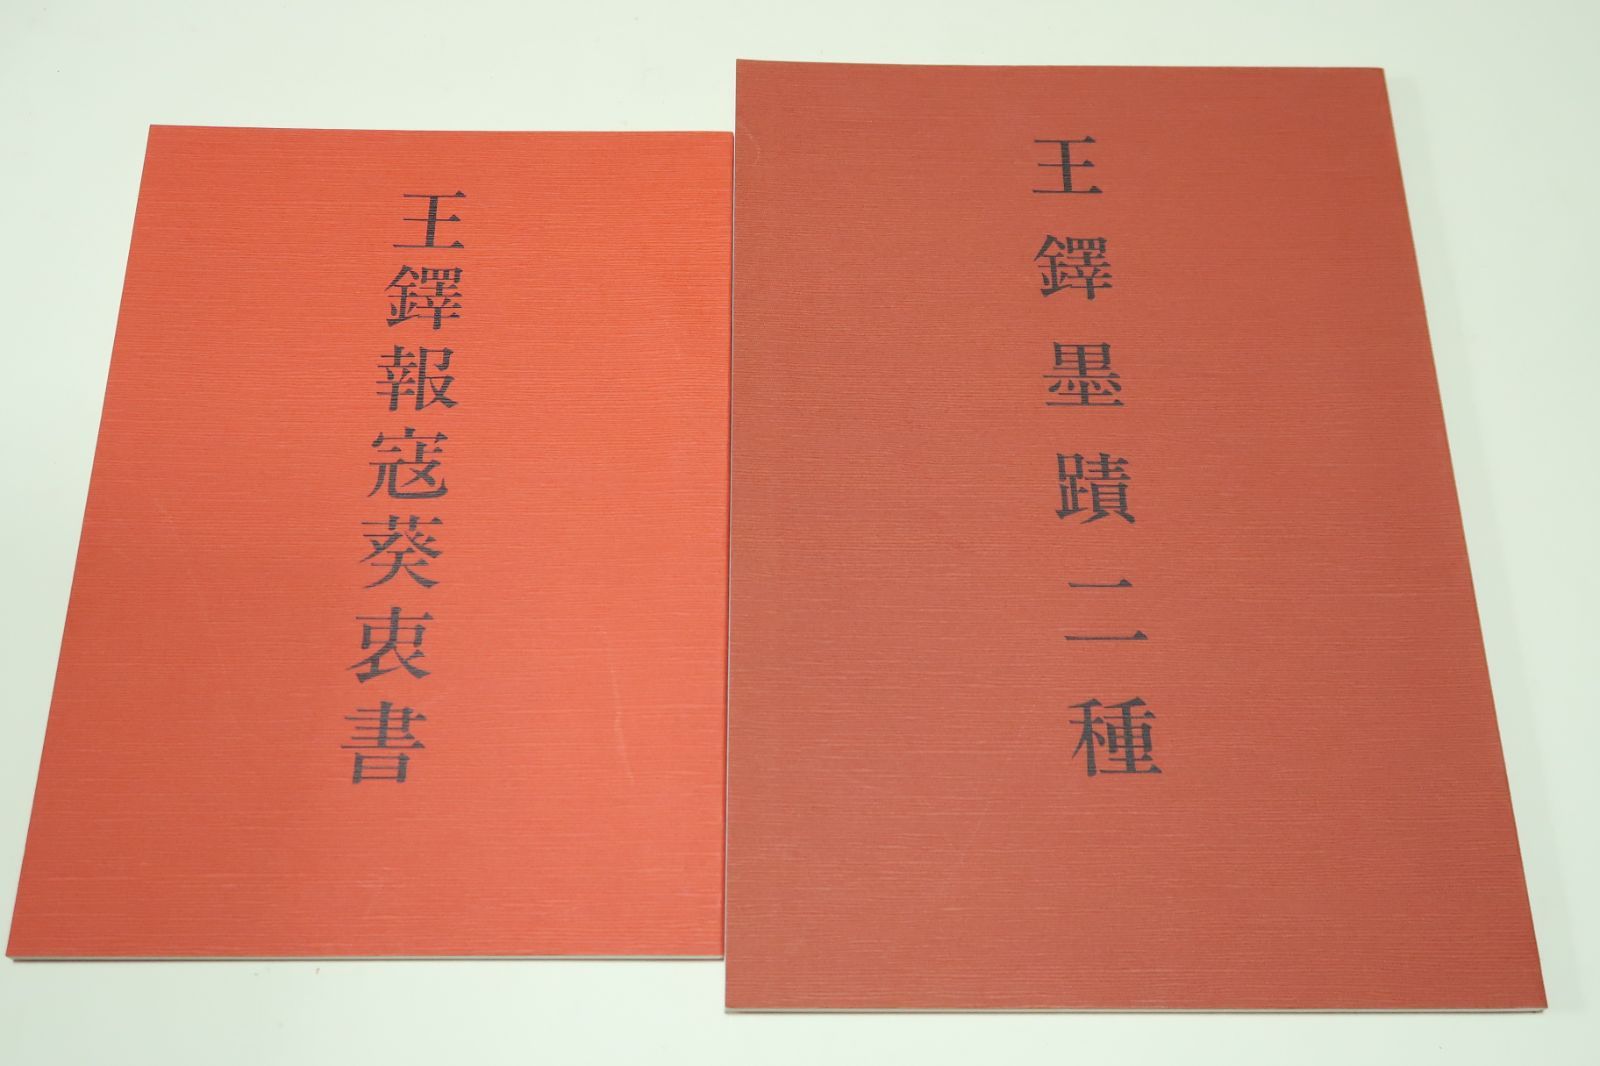 王鐸報寇葵衷書
王鐸墨蹟二種